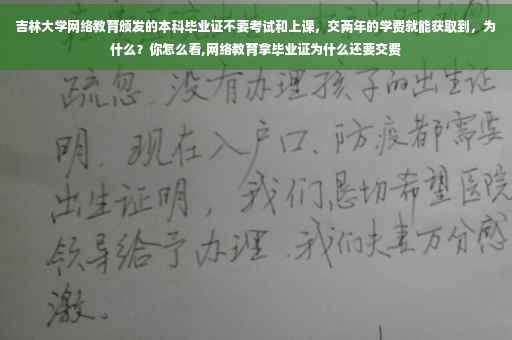 吉林大学网络教育颁发的本科毕业证不要考试和上课，交两年的学费就能获取到，为
什么？你怎么看,网络教育拿毕业证为什么还要交费
疏忽、没有办理孩子的出生证
明、现在入户口、防疫都需要
出生证明，我们恳切希望医院
领导给予办理、我们夫妻万分感
激。